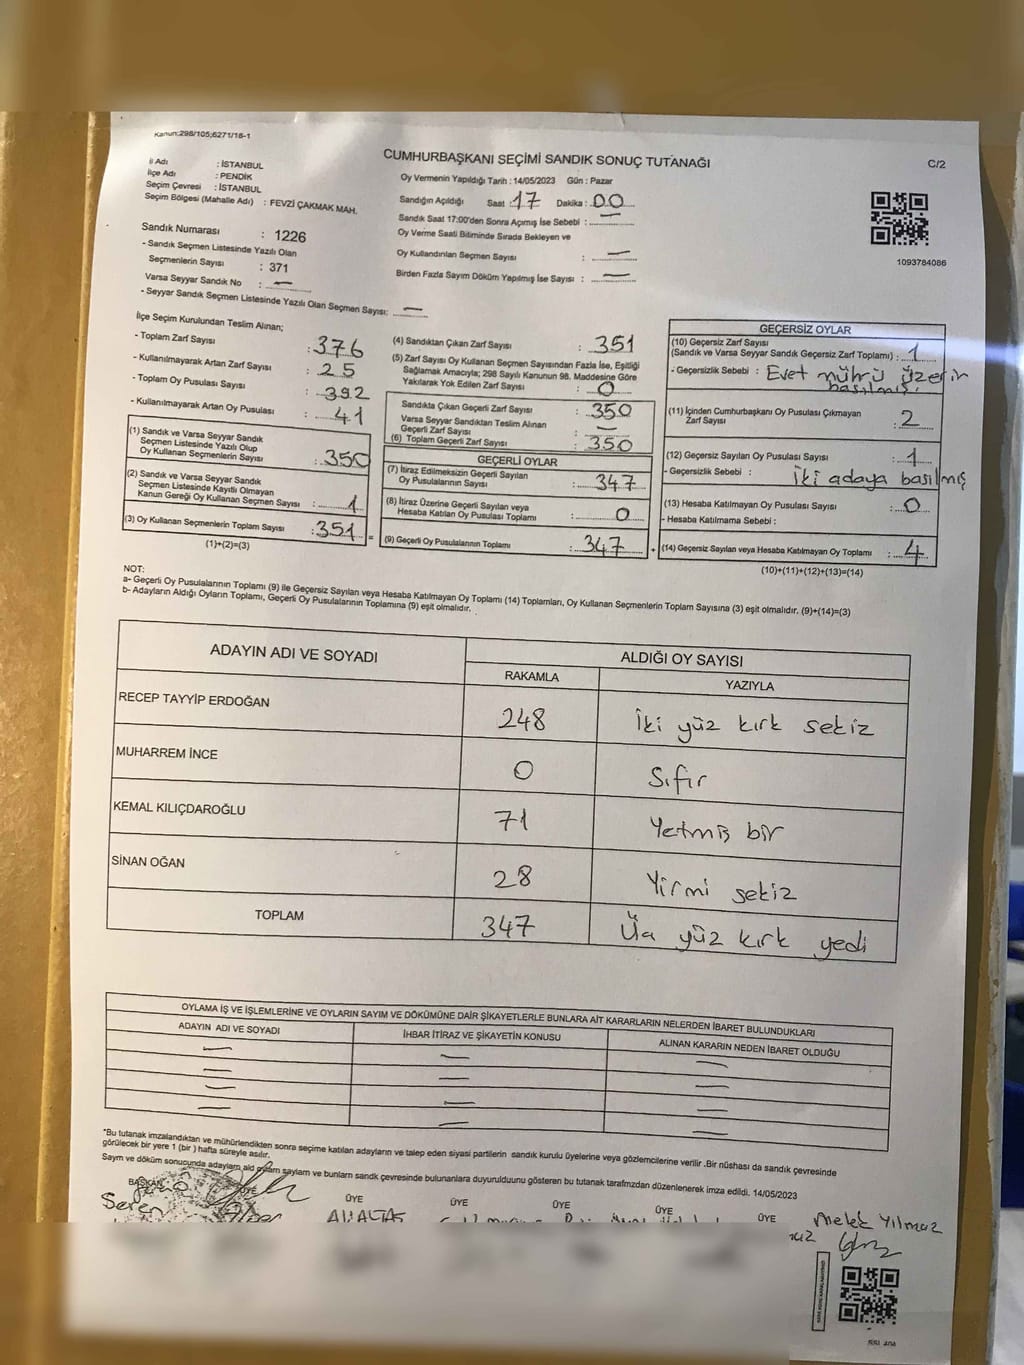 Kanun:298/105;6271/18-1
CUMHURBAŞKANI SEÇİMİ SANDIK SONUÇ TUTANAĞI
C/2
İl Adı : İSTANBUL
İlçe Adı : PENDİK
Seçim Çevresi : İSTANBUL
Seçim Bölgesi (Mahalle Adı) : FEVZİ ÇAKMAK MAH.
Sandık Numarası : 1226
- Sandık Seçmen Listesinde Yazılı Olan
Seçmenlerin Sayısı : 371
Varsa Seyyar Sandık No : —
- Seyyar Sandık Seçmen Listesinde Yazılı Olan Seçmen Sayısı: —
Oy Vermenin Yapıldığı Tarih : 14/05/2023 Gün : Pazar
Sandığın Açıldığı Saat : 17 Dakika : 00
Sandık Saat 17:00'den Sonra Açımış İse Sebebi : —
Oy Verme Saati Bitiminde Sırada Bekleyen ve
Oy Kullandırılan Seçmen Sayısı : —
Birden Fazla Sayım Döküm Yapılmış İse Sayısı : —
1093784086
İlçe Seçim Kurulundan Teslim Alınan;
- Toplam Zarf Sayısı : 376
- Kullanılmayarak Artan Zarf Sayısı : 25
- Toplam Oy Pusulası Sayısı : 392
- Kullanılmayarak Artan Oy Pusulası : 41
(1) Sandık ve Varsa Seyyar Sandık
Seçmen Listesinde Yazılı Olup
Oy Kullanan Seçmenlerin Sayısı : 350
(2) Sandık ve Varsa Seyyar Sandık
Seçmen Listesinde Kayıtlı Olmayan
Kanun Gereği Oy Kullanan Seçmen Sayısı : 1
(3) Oy Kullanan Seçmenlerin Toplam Sayısı : 351 =
(1)+(2)=(3)
(4) Sandıktan Çıkan Zarf Sayısı : 351
(5) Zarf Sayısı Oy Kullanan Seçmen Sayısından Fazla İse, Eşitliği
Sağlamak Amacıyla; 298 Sayılı Kanunun 98. Maddesine Göre
Yakılarak Yok Edilen Zarf Sayısı : 0
Sandıkta Çıkan Geçerli Zarf Sayısı : 350
Varsa Seyyar Sandıktan Teslim Alınan
Geçerli Zarf Sayısı : —
(6) Toplam Geçerli Zarf Sayısı : 350
GEÇERLİ OYLAR
(7) İtiraz Edilmeksizin Geçerli Sayılan
Oy Pusulalarının Sayısı : 347
(8) İtiraz Üzerine Geçerli Sayılan veya
Hesaba Katılan Oy Pusulası Toplamı : 0
(9) Geçerli Oy Pusulalarının Toplamı : 347 +
GEÇERSİZ OYLAR
(10) Geçersiz Zarf Sayısı
(Sandık ve Varsa Seyyar Sandık Geçersiz Zarf Toplamı) : 1
- Geçersizlik Sebebi : Evet mührü üzerin
basılmış
(11) İçinden Cumhurbaşkanı Oy Pusulası Çıkmayan
Zarf Sayısı : 2
(12) Geçersiz Sayılan Oy Pusulası Sayısı : 1
- Geçersizlik Sebebi : İki adaya basılmış
(13) Hesaba Katılmayan Oy Pusulası Sayısı : 0
- Hesaba Katılmama Sebebi :
(14) Geçersiz Sayılan veya Hesaba Katılmayan Oy Toplamı : 4
(10)+(11)+(12)+(13)=(14)
NOT:
a- Geçerli Oy Pusulalarının Toplamı (9) ile Geçersiz Sayılan veya Hesaba Katılmayan Oy Toplamı (14) Toplamları, Oy Kullanan Seçmenlerin Toplam Sayısına (3) eşit olmalıdır. (9)+(14)=(3)
b- Adayların Aldığı Oyların Toplamı, Geçerli Oy Pusulalarının Toplamına (9) eşit olmalıdır.
ADAYIN ADI VE SOYADI ALDIĞI OY SAYISI
RAKAMLA YAZIYLA
RECEP TAYYİP ERDOĞAN 248 İki yüz kırk sekiz
MUHARREM İNCE 0 Sıfır
KEMAL KILIÇDAROĞLU 71 Yetmiş bir
SİNAN OĞAN 28 Yirmi sekiz
TOPLAM 347 Üç yüz kırk yedi
OYLAMA İŞ VE İŞLEMLERİNE VE OYLARIN SAYIM VE DÖKÜMÜNE DAİR ŞİKAYETLERLE BUNLARA AİT KARARLARIN NELERDEN İBARET BULUNDUKLARI
ADAYIN ADI VE SOYADI İHBAR İTİRAZ VE ŞİKAYETİN KONUSU ALINAN KARARIN NEDEN İBARET OLDUĞU
— — —
— — —
— — —
— — —
*Bu tutanak imzalandıktan ve mühürlendikten sonra seçime katılan adayların ve talep eden siyasi partilerin sandık kurulu üyelerine veya gözlemcilerine verilir .Bir nüshası da sandık çevresinde
görülecek bir yere 1 (bir ) hafta süreyle asılır.
Sayım ve döküm sonucunda adayların ald oyların sayıların ve bunların sandık çevresinde bulunanlara duyurulduunu gösteren bu tutanak tarafmzdan düzenlenerek imza edildi. 14/05/2023
BAŞKAN ÜYE ÜYE ÜYE ÜYE ÜYE ÜYE
Seren
Melek Yılmaz